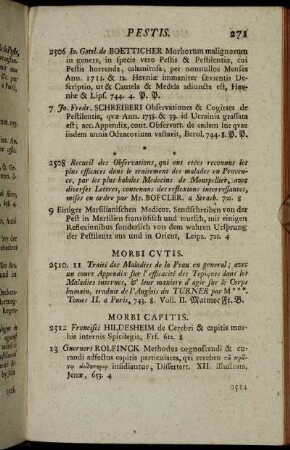 PESTIS. 271
2506 Io. Gotel. de BOETTICHER Morborum malignorum
in genere, in specie vero Pestis & Pestilentiæ, cui
Pestis horrenda, calamitosa, per nonnullos Menses
Ann. 1711. & 12. Havniæ immaniter sævientis De-
scriptio, ut & Cautela & Medela adiuncta est, Hav-
niæ & Lips. 744. 4. P. P.
7 Jo. Fredr. SCHREIBERI Observationes & Cogitata de
Pestilentia, quæ Ann. 1738. & 39. id Ucrainia grassata
est; acc. Appendix, cont. Observatt. de eadem lue quæ
iisdem annis Oczacovium vastavit, Berol. 744. 8. P. P.
* *
2508 Recueil des Observations, qui ont etées reconuns les
plus efficaces dans le traitement des malades en Proven-
ce, par les plus habiles Medecins de Montpelier, avec
diverses Lettres, contenans des reflexions interressantes,
mises en ordre par Mr. BOECLER. a Strasb. 721. 8
9 Einiger Marsilianischen Medicor. Sendschreiben von der
Pest in Marsilien französisch und teutsch, mit einigen
Reflexionibus sonderlich von dem wahren Ursprung
der Pestilentz aus und in Orient, Leipz. 721. 4
MORBI CVTIS.
2510. 11 Traité des Maladies de la Peau en general; avec
un cours Appendix sur l'efficacité des Topiques dans les
Maladies internes, & leur maniere d'agir sur le Corps
humain, traduit de l'Anglois de TURNER par M***.
Tomes II. a Paris, 743. 8. Voll. II. Marmor Fr. B.
MORBI CAPITIS.
2512 Francisci HILDESHEIM de Cerebri & capitis mor-
bis internis Spicilegia, Frf. 612. 8
13 Guerneri ROLFINCK Methodus cognoscendi & cu-
randi adfectus capitis particulares, qui cerebro
insidiantur, Dissertatt. XII. illustrata,
Jenæ, 653. 4
2514